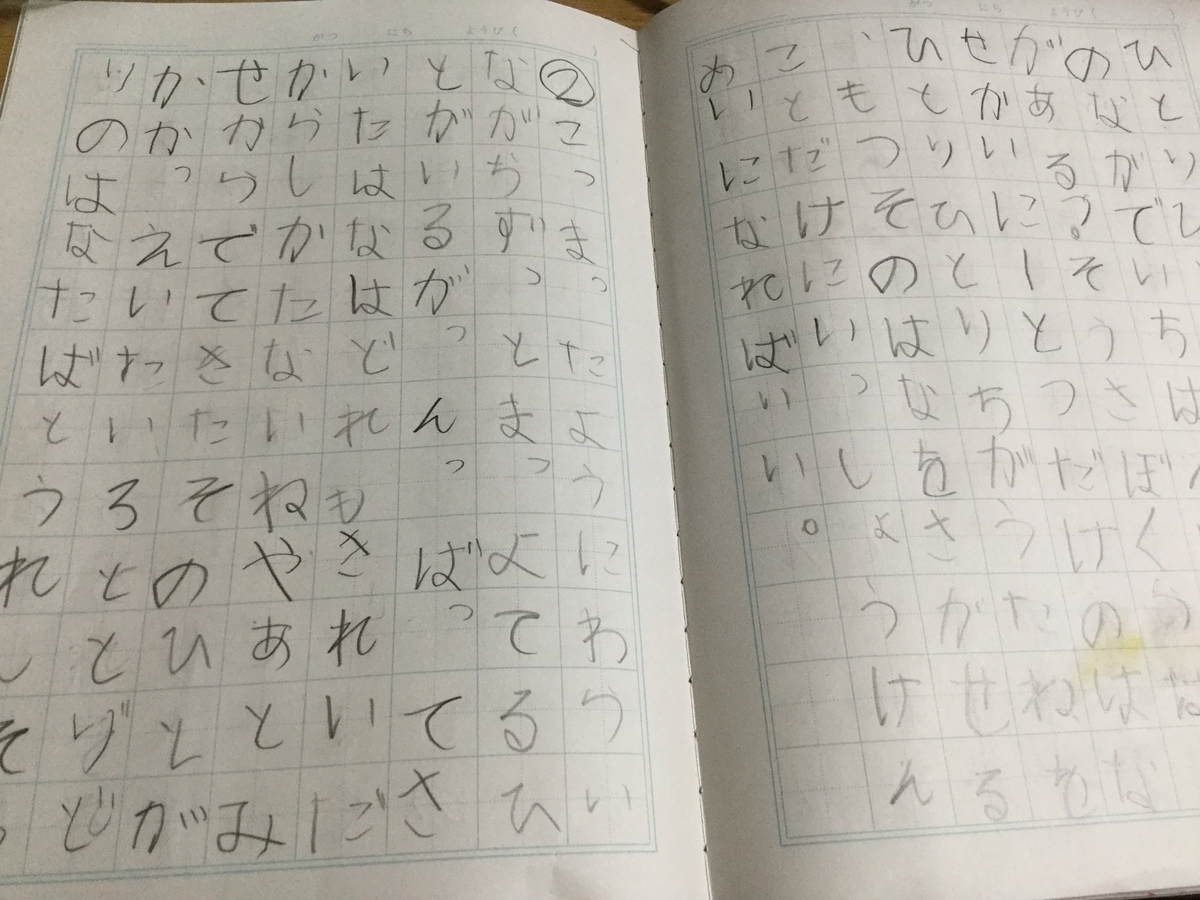 ひとりひ
のながでいちばん
がある？そうさぼくらは
せかいにーとつだけのはな
ひとりひとりちがうたねを
、もつそのはなをさがせる
ことだけにいっしようけん
めいになればいい。
②こっまったようにわらい
ながちずっとまっよてるひ
とがいるがっんっばってさ
いたはなはどれもきれいだ
からしかたないねやあとみ
せからでてきたそのひとが
かかっえいたいろととりど
りのはなたばとうれしそ